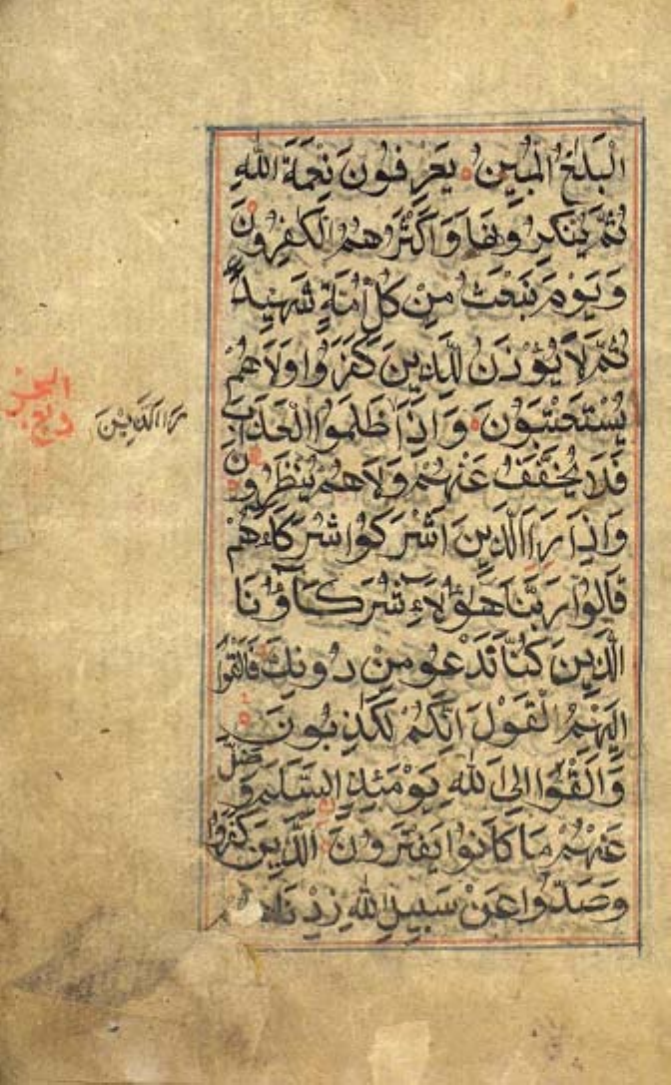 الْبَلٰغُ الْمُبِيْنُ يَعْرِفُوْنَ نِعْمَةَ اللّٰهِ
ثُمَّ يُنْكِرُوْنَهَا وَاَكْثَرُهُمُ الْكٰفِرُوْنَ
وَيَوْمَ نَبْعَثُ مِنْ كُلِّ اُمَّةٍ شَهِيْدًا
ثُمَّ لَا يُؤْذَنُ لِلَّذِيْنَ كَفَرُوْا وَلَا هُمْ
يُسْتَعْتَبُوْنَ وَاِذَا رَاَ ظَلَمُوا الْعَذَابَ
فَلَا يُخَفَّفُ عَنْهُمْ وَلَا هُمْ يُنْظَرُوْنَ
وَاِذَا رَاَ الَّذِيْنَ اَشْرَكُوْا شُرَكَاءَهُمْ
قَالُوْا رَبَّنَا هٰؤُلَاءِ شُرَكَاؤُنَا
الَّذِيْنَ كُنَّا نَدْعُو مِنْ دُوْنِكَ فَاَلْقَوْا
اِلَيْهِمُ الْقَوْلَ اِنَّكُمْ لَكٰذِبُوْنَ
وَاَلْقَوْا اِلَى اللّٰهِ يَوْمَئِذٍ السَّلَمَ وَضَلَّ
عَنْهُمْ مَا كَانُوْا يَفْتَرُوْنَ الَّذِيْنَ كَفَرُوْا
وَصَدُّوْا عَنْ سَبِيْلِ اللّٰهِ زِدْنَاهُمْ
رَاَ الَّذِيْنَ